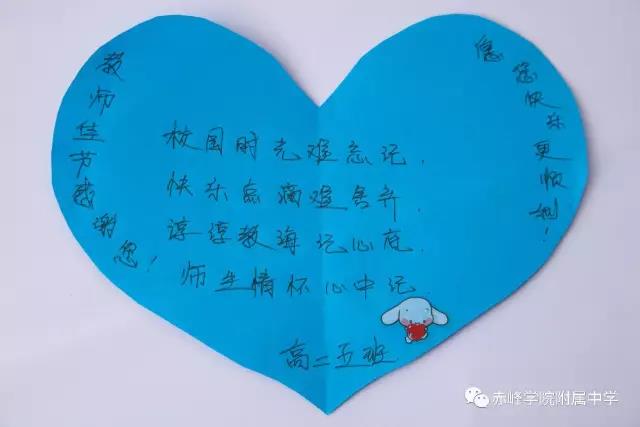 教师佳节感谢您!
校园时光难忘记.
快乐点滴难舍弃.
谆谆教海记心底.
师生情怀心中记.
高二五班
愿您快乐更顺利!
赤峰学院附属中学